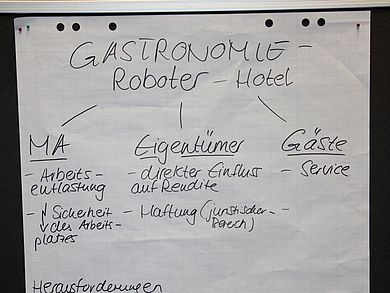 GASTRONOMIE -
Roboter - Hotel
MA
- Arbeits-
entlastung
- ↓ Sicherheit
des Arbeits-
platzes
Eigentümer
- direkter Einfluss
auf Rendite
- Haftung (juristischer
Bereich)
Gäste
- Service
-
Herausforderungen